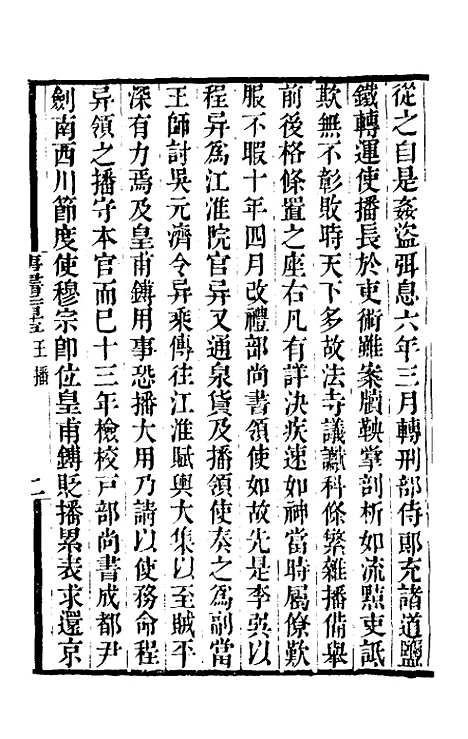 從之自是姦盜弭息六年三月轉刑部侍郎充諸道鹽
鐵轉運使播長於吏術雖案牘鞅掌剖析如流黠吏詆
欺無不彰敗時天下多故法寺議讞科條繁雜播備舉
前後格條置之座右凡有詳決疾速如神當時屬僚歎
服不暇十年四月改禮部尚書領使如故先是李巽以
程异爲江淮院官异又通泉貨及播領使奏之爲副當
王師討吳元濟令异乘傳往江淮賦輿大集以至賊平
深有力焉及皇甫鎛用事恐播大用乃請以使務命程
异領之播守本官而已十三年檢校戸部尚書成都尹
劍南西川節度使穆宗卽位皇甫鎛貶播累表求還京
王播
二